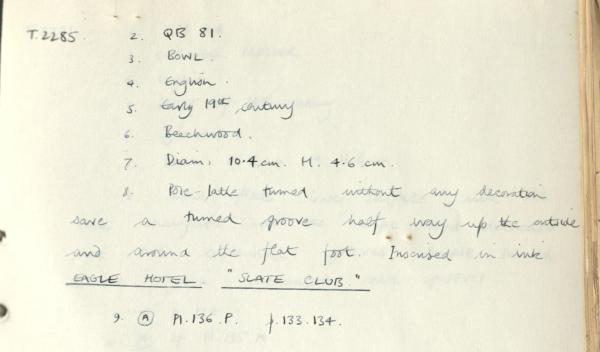 T.2285. 2. QB 81.
3. BOWL.
4. English.
5. Early 19th century
6. Beechwood.
7. Diam: 10.4 cm. H. 4.6 cm.
8. Pole-lathe turned without any decoration
save a turned groove half way up the outside
and around the flat foot. Inscribed in ink
EAGLE HOTEL. "SLATE CLUB."
9. (A) Pl.136.P. p.133.134.